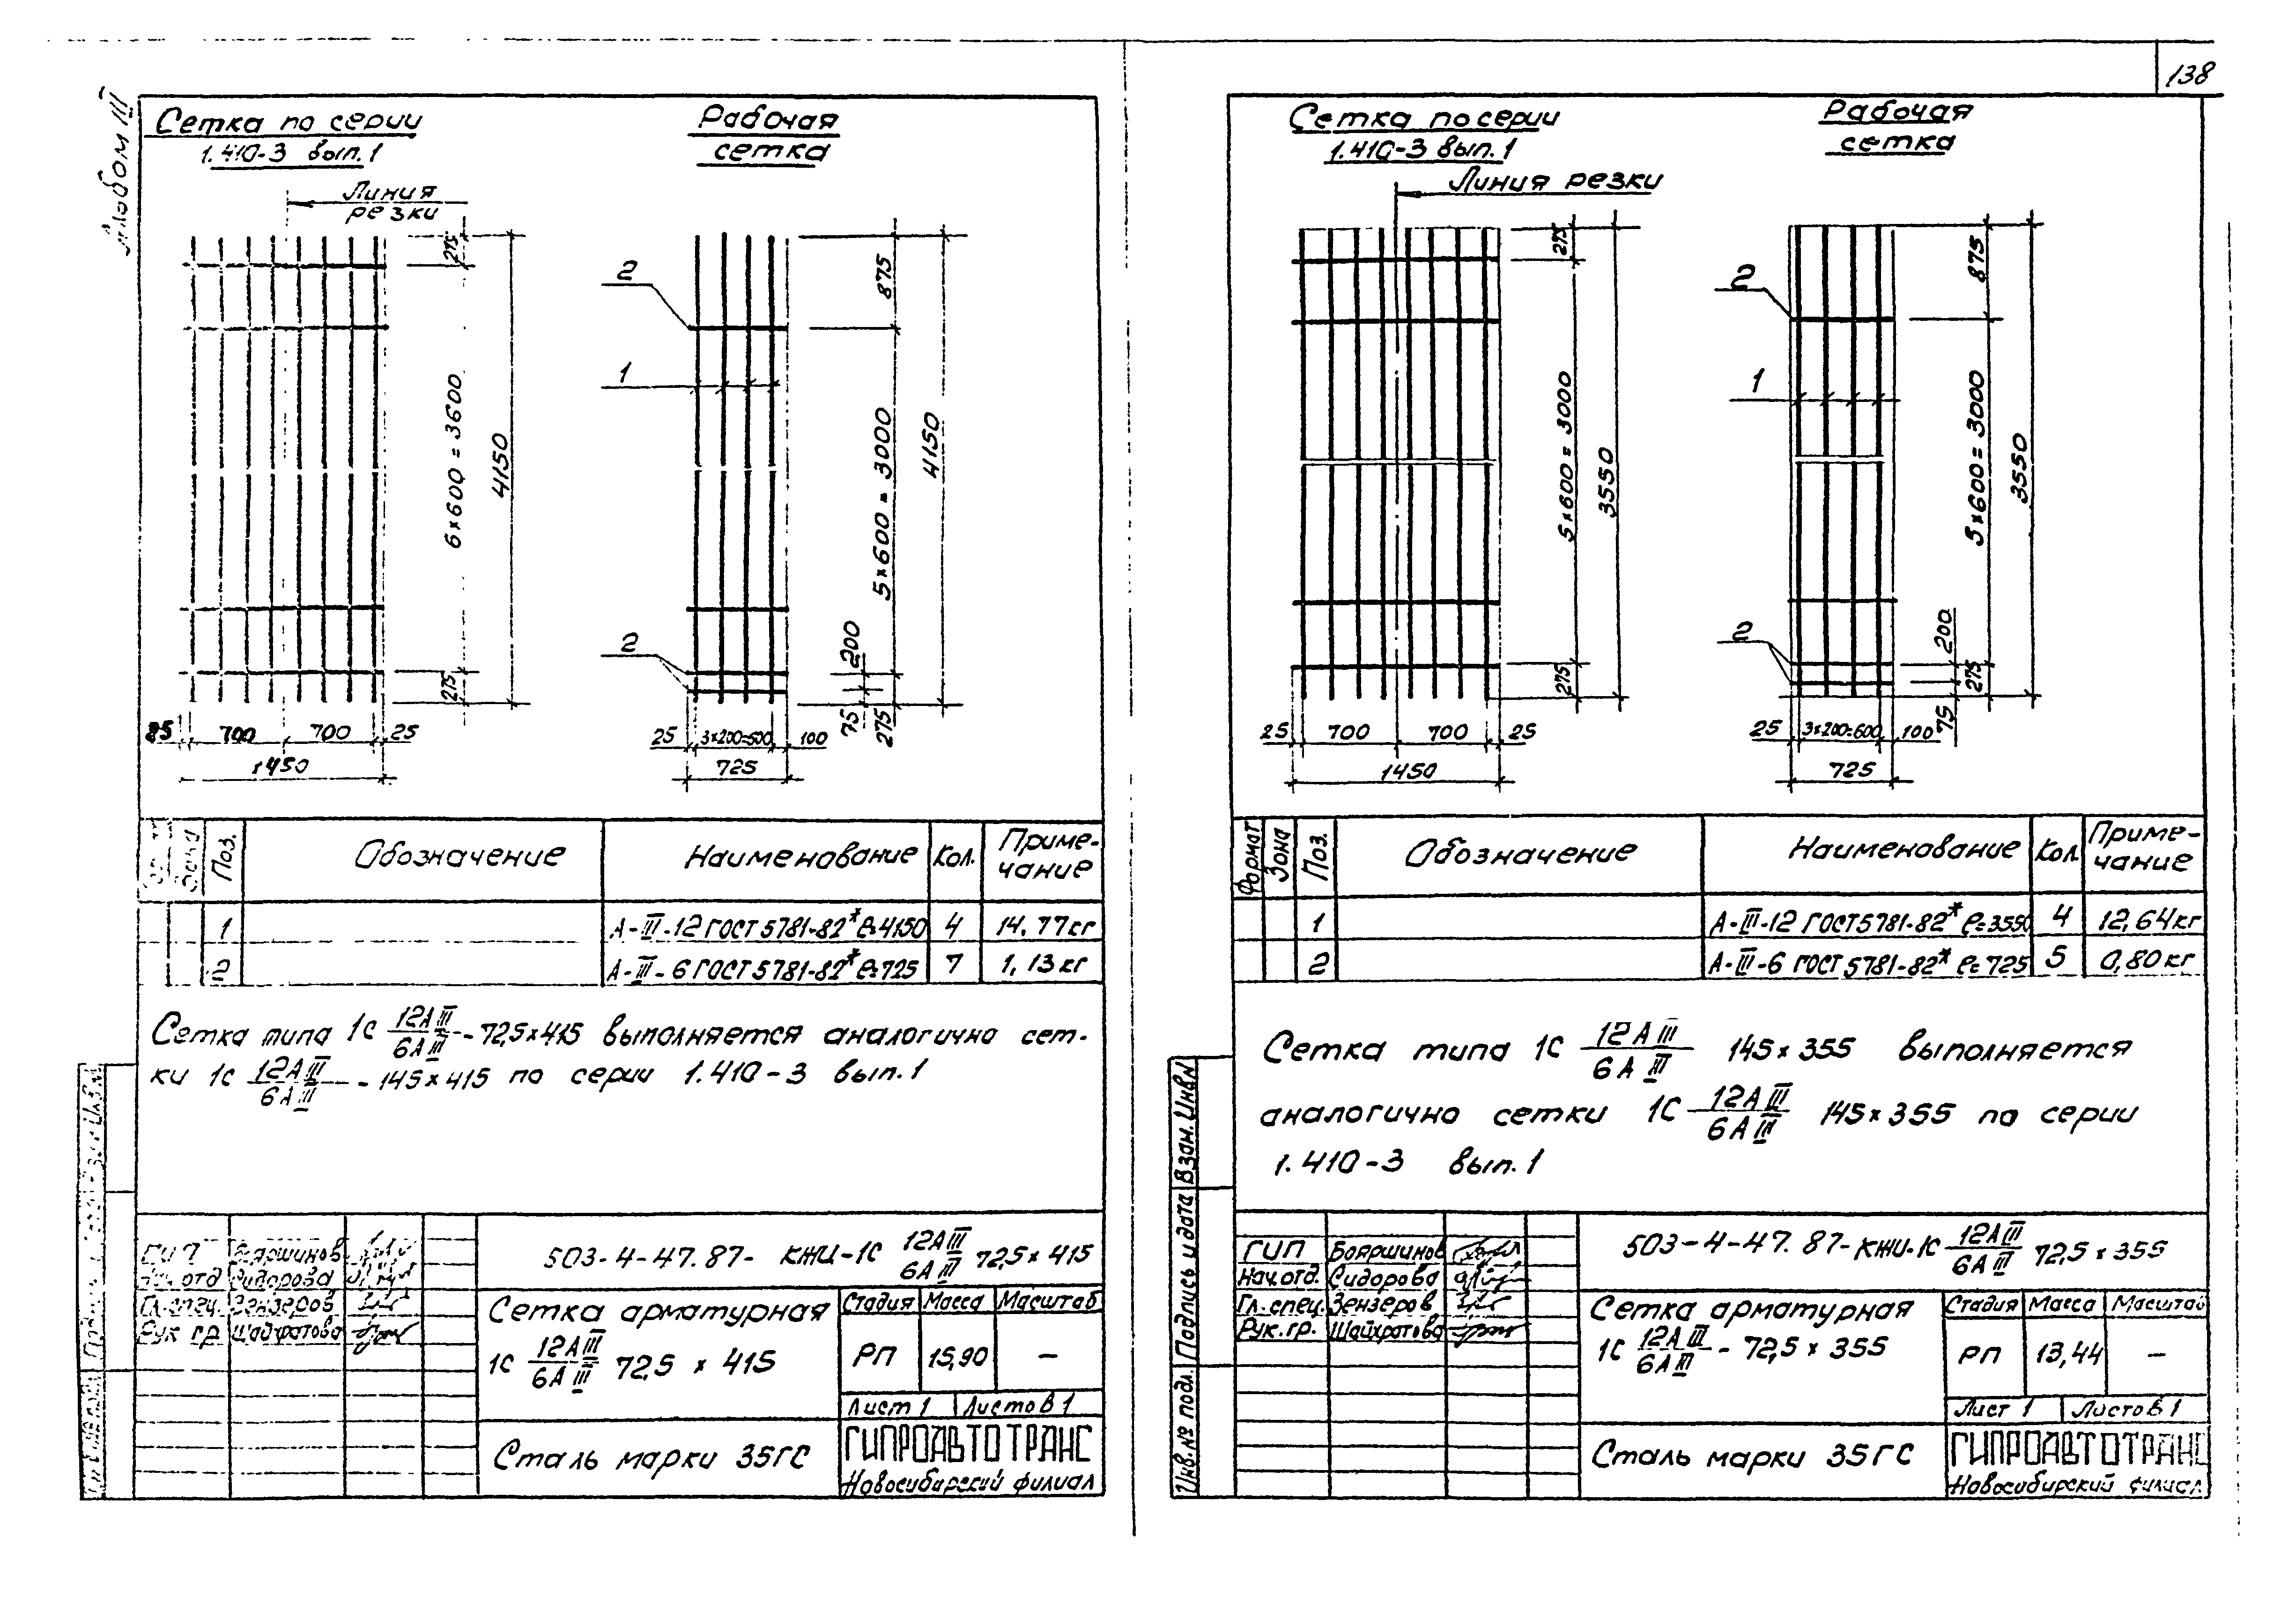 138
Альбом III
Сетка по серии
1.410-3 вып.1
Рабочая
сетка
Линия
резки
275
6×600=3600
275
4150
25 700 700 25
1450
2
1
2
875
5×600=3000
200
75
275
4150
25 3×200=600 100
725
Поз. Обозначение Наименование Кол. Приме-
чание
1 А-III-12 ГОСТ 5781-82* ℓ=4150 4 14,77кг
2 А-III-6 ГОСТ 5781-82* ℓ=725 7 1,13кг
Сетка типа 1С 12АIII/6АIII - 72,5×415 выполняется аналогично сет-
ки 1С 12АIII/6АIII - 145×415 по серии 1.410-3 вып.1
ГИП Бояршинов
Нач.отд Сидорова
Гл.спец. Зензеров
Рук.гр. Шайхратова
503-4-47.87- КЖИ-1С 12АIII/6АIII 72,5×415
Сетка арматурная
1С 12АIII/6АIII 72,5 × 415
Стадия Масса Масштаб
РП 15,90 —
Лист 1 Листов 1
Сталь марки 35ГС
ГИПРОАВТОТРАНС
Новосибирский филиал
Сетка по серии
1.410-3 вып.1
Рабочая
сетка
Линия резки
275
5×600=3000
275
3550
25 700 700 25
1450
2
1
2
875
5×600=3000
200
275
75
3550
25 3×200=600 100
725
Формат Зона Поз. Обозначение Наименование Кол. Приме-
чание
1 А-III-12 ГОСТ 5781-82* ℓ=3550 4 12,64кг
2 А-III-6 ГОСТ 5781-82* ℓ=725 5 0,80кг
Сетка типа 1С 12АIII/6АIII 145×355 выполняется
аналогично сетки 1С 12АIII/6АIII 145×355 по серии
1.410-3 вып.1
Инв.№ подл. Подпись и дата Взам.Инв№
ГИП Бояршинов
Нач.отд. Сидорова
Гл.спец. Зензеров
Рук.гр. Шайхратова
503-4-47.87-КЖИ-1С 12АIII/6АIII 72,5×355
Сетка арматурная
1С 12АIII/6АIII - 72,5×355
Стадия Масса Масштаб
РП 13,44 —
Лист 1 Листов 1
Сталь марки 35ГС
ГИПРОАВТОТРАНС
Новосибирский филиал